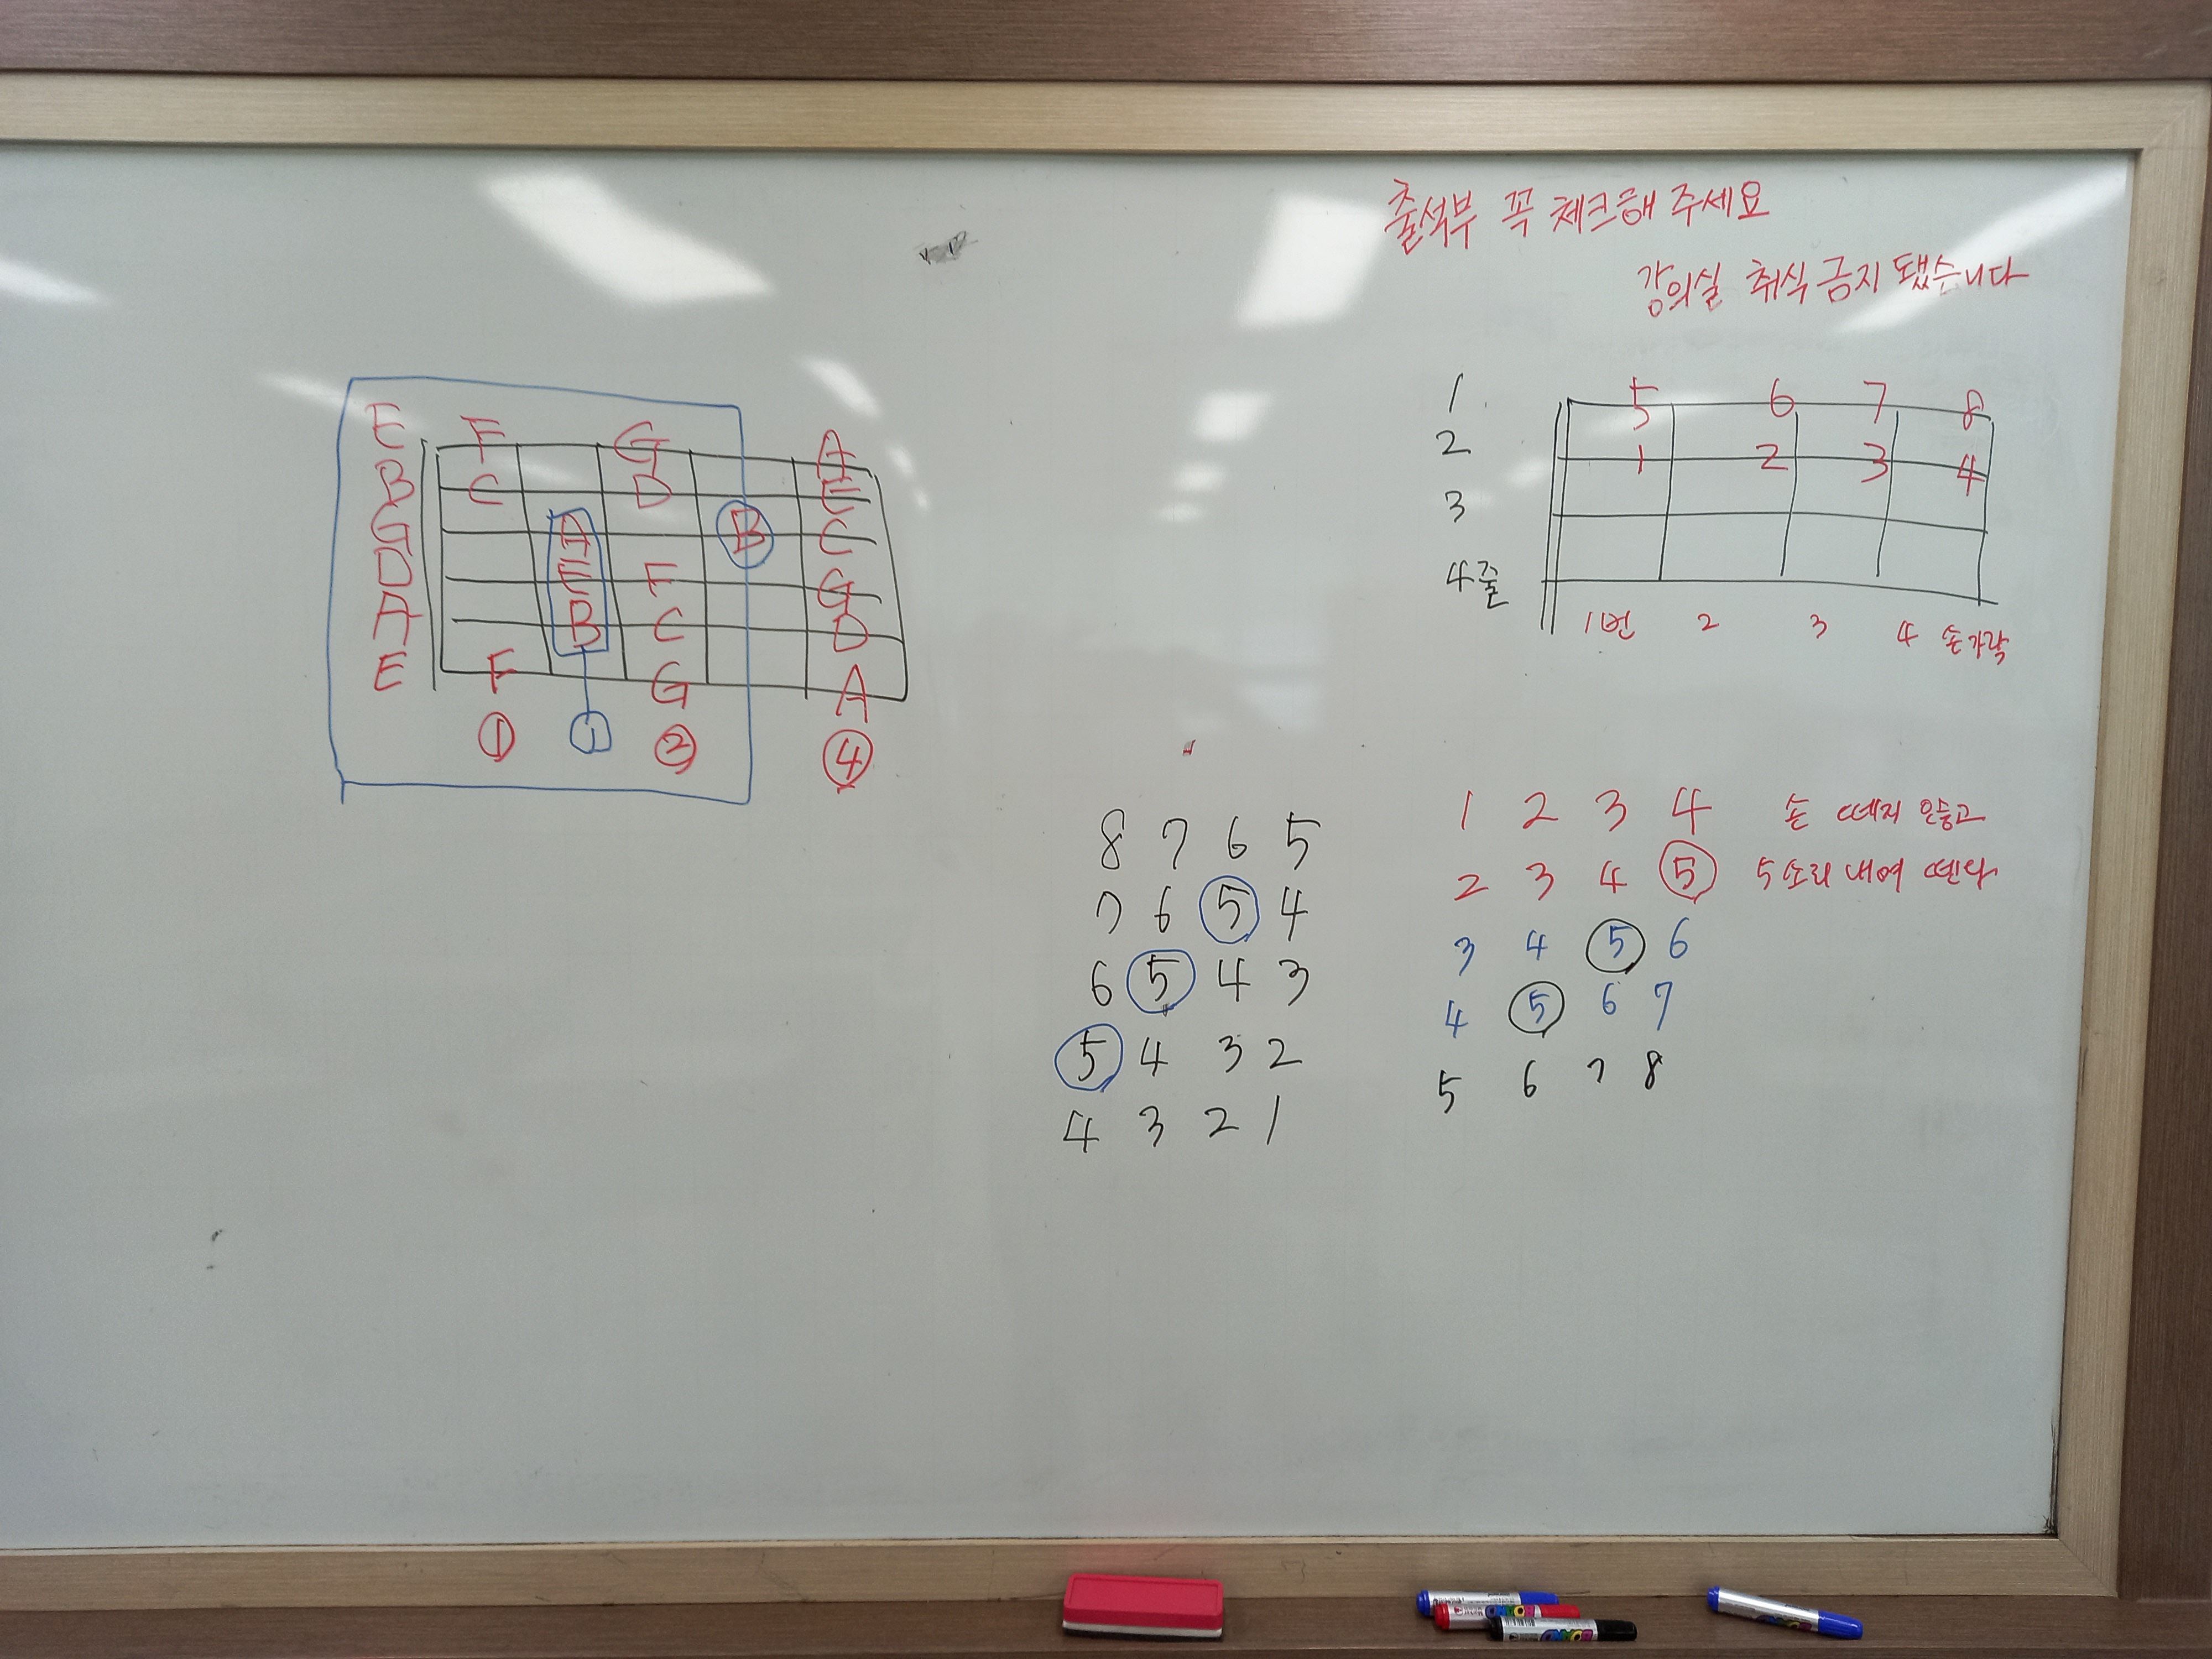 출석부 꼭 체크해 주세요
강의실 취식 금지 됐습니다
E F G A
B C D E
G A B C
D E F G
A B C D
E F G A
① ① ② ④
1 5 6 7 8
2 1 2 3 4
3
4줄
1번 2 3 4 손가락
8 7 6 5
7 6 5 4
6 5 4 3
5 4 3 2
4 3 2 1
1 2 3 4 손 떼지 않고
2 3 4 5 5소리 내며 뗀다
3 4 5 6
4 5 6 7
5 6 7 8